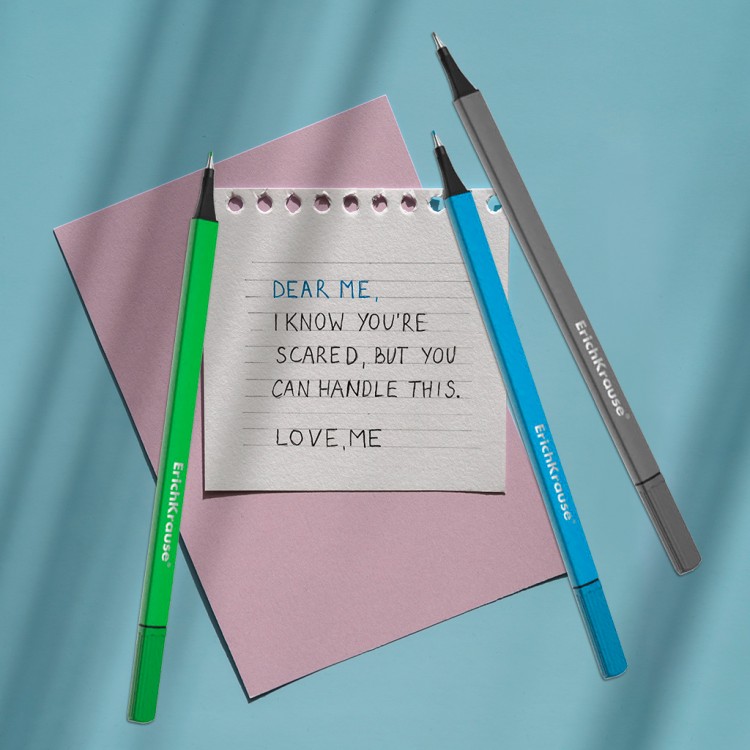 DEAR ME,
I KNOW YOU'RE
SCARED, BUT YOU
CAN HANDLE THIS.
LOVE, ME
ErichKrause®
ErichKrause®
ErichKrause®